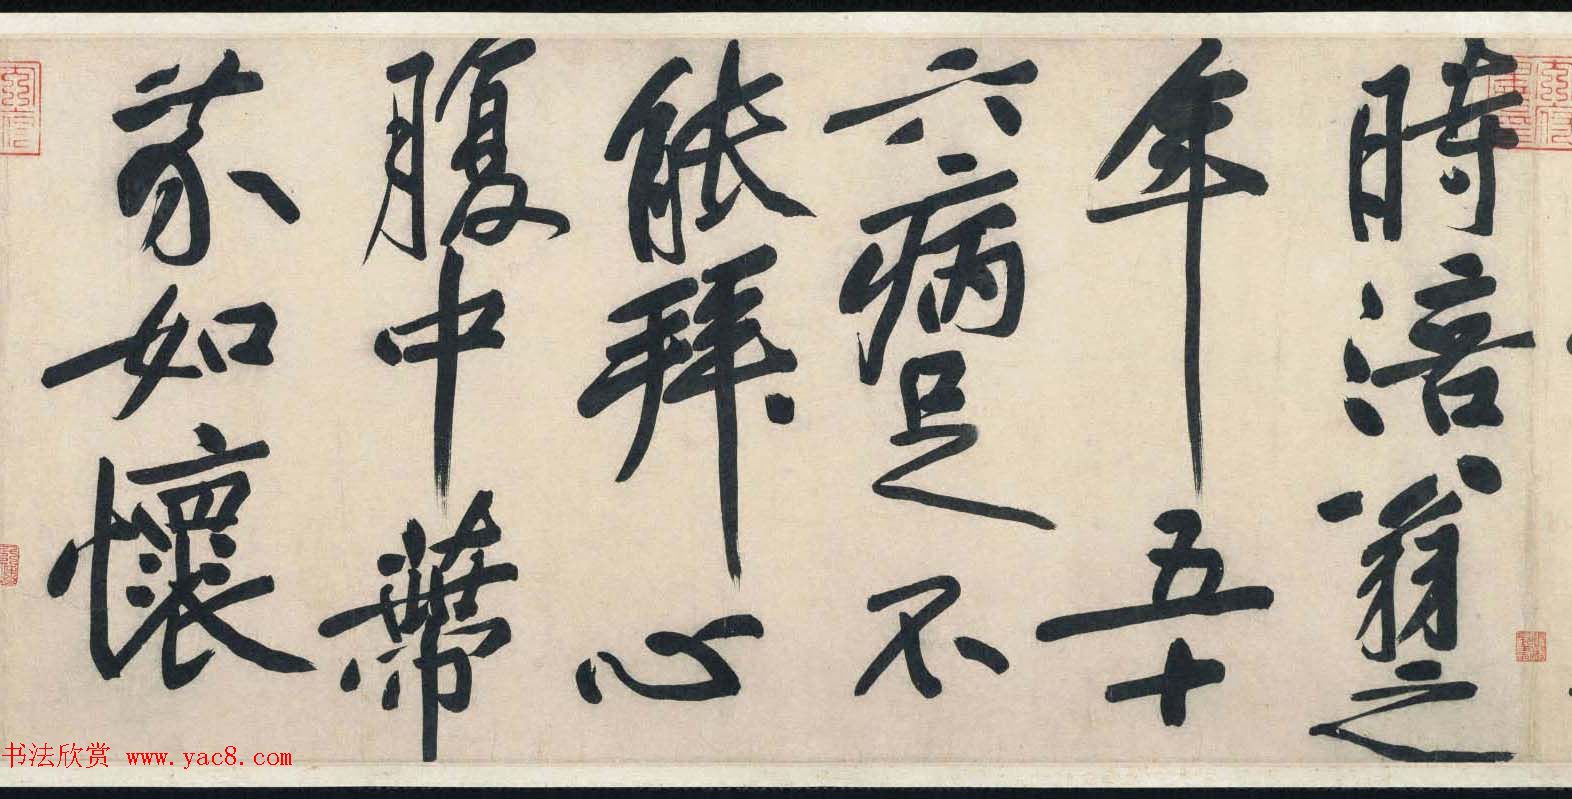 時涪翁之
年五十
六病足不
能拜心
腹中蔕
芥如懷
书法欣赏 www.yac8.com